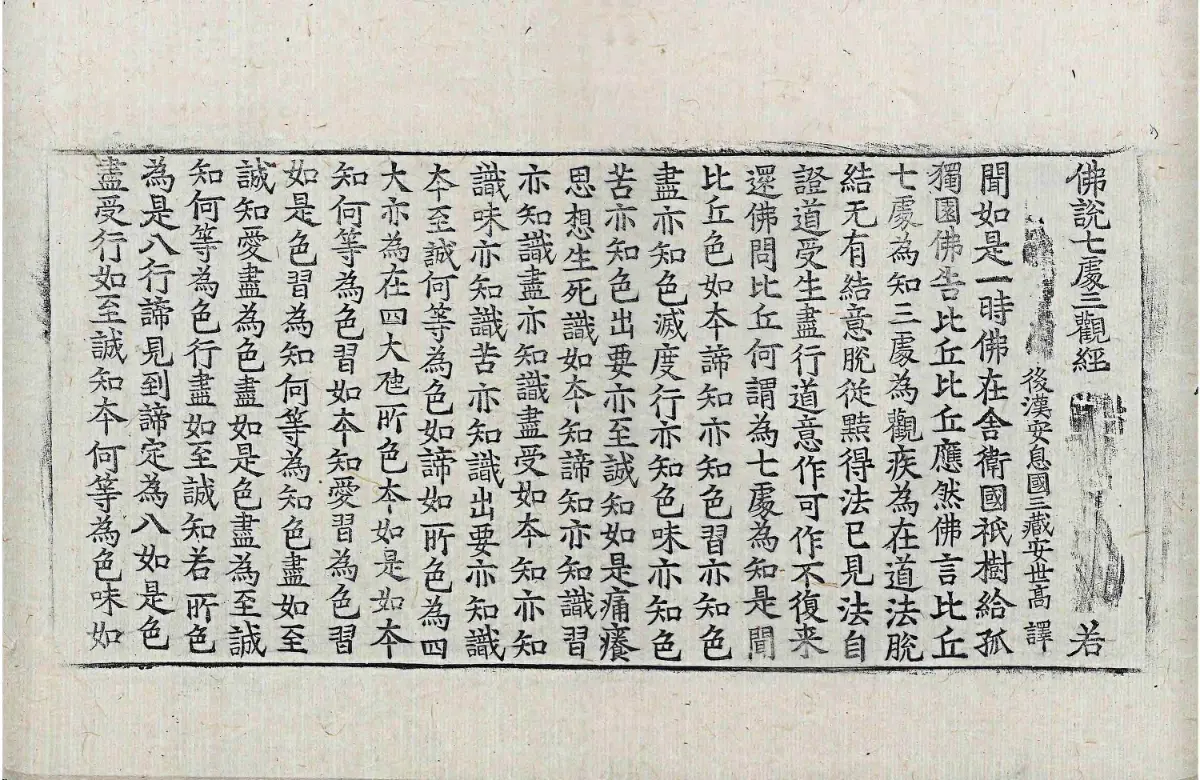 佛說七處三觀經 若
後漢安息國三藏安世高 譯
聞如是一時佛在舍衛國祇樹給孤
獨園佛告比丘比丘應然佛言比丘
七處為知三處為觀疾為在道法脫
結无有結意脫從黠得法已見法自
證道受生盡行道意作可作不復来
還佛問比丘何謂為七處為知是聞
比丘色如夲諦知亦知色習亦知色
盡亦知色滅度行亦知色味亦知色
苦亦知色出要亦至誠知如是痛癢
思想生死識如夲知諦知亦知識習
亦知識盡亦知識盡受如夲知亦知
識味亦知識苦亦知識出要亦知識
夲至誠何等為色如諦如所色為四
大亦為在四大虺所色夲如是如夲
知何等為色習如夲知愛習為色習
如是色習為知何等為知色盡如至
誠知愛盡為色盡如是色盡為至誠
知何等為色行盡如至誠知若所色
為是八行諦見到諦定為八如是色
盡受行如至誠知夲何等為色味如